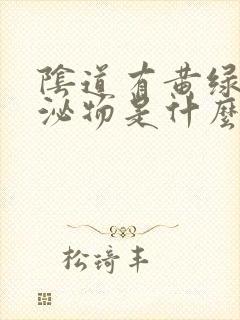 陰道有黃綠
泌物是什麼
松琦丰